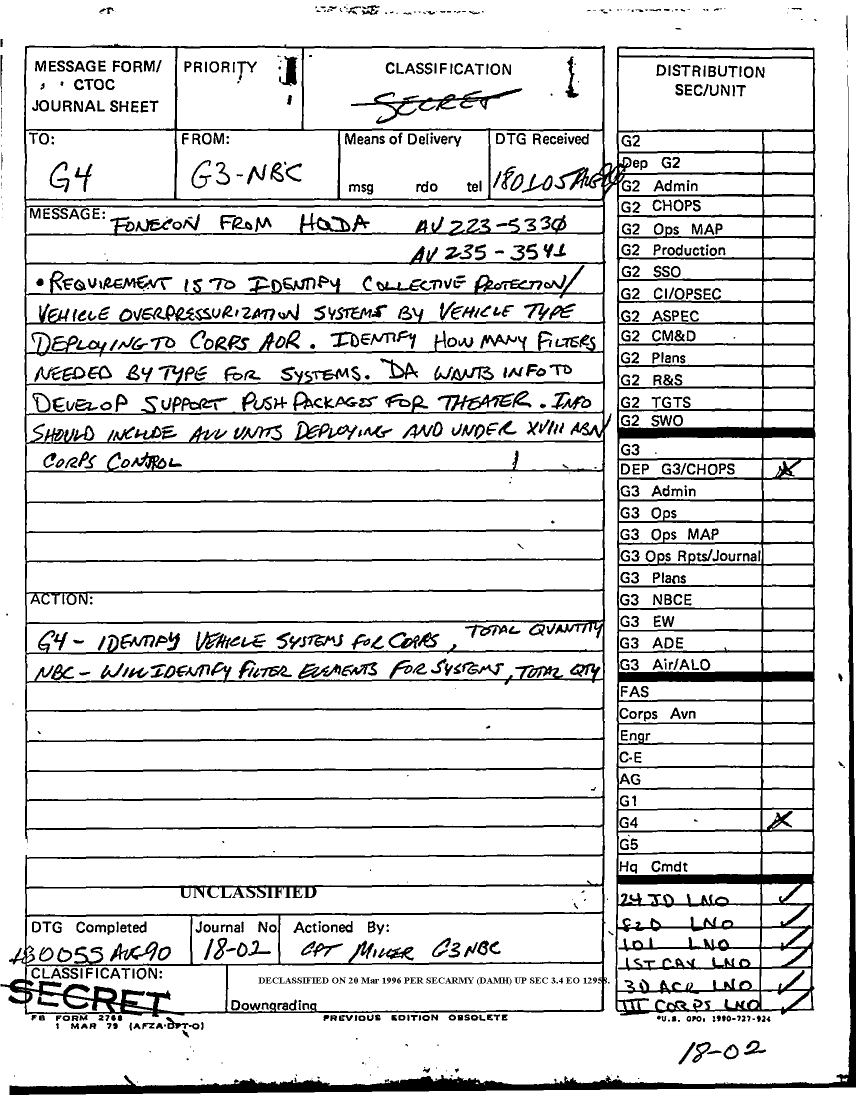 MESSAGE FORM/
CTOC
JOURNAL SHEET
PRIORITY
CLASSIFICATION
SECRET
TO:
G4
FROM:
G3-NBC
Means of Delivery
msg rdo tel
DTG Received
180105AUG90
MESSAGE: FONECON FROM HQDA AV 223-5330
AV 235-3541
• REQUIREMENT IS TO IDENTIFY COLLECTIVE PROTECTION/
VEHICLE OVERPRESSURIZATION SYSTEMS BY VEHICLE TYPE
DEPLOYING TO CORPS AOR. IDENTIFY HOW MANY FILTERS
NEEDED BY TYPE FOR SYSTEMS. DA WANTS INFO TO
DEVELOP SUPPORT PUSH PACKAGES FOR THEATER. INFO
SHOULD INCLUDE ALL UNITS DEPLOYING AND UNDER XVIII ABN
CORPS CONTROL
ACTION:
G4 - IDENTIFY VEHICLE SYSTEMS FOR CORPS, TOTAL QUANTITY
NBC - WILL IDENTIFY FILTER ELEMENTS FOR SYSTEMS, TOTAL QTY
UNCLASSIFIED
DTG Completed
180055 AUG 90
Journal No
18-02
Actioned By:
CPT MILLER G3NBC
CLASSIFICATION:
SECRET
DECLASSIFIED ON 20 Mar 1996 PER SECARMY (DAMH) UP SEC 3.4 EO 12958.
Downgrading
FB FORM 2768
1 MAR 79 (AFZA-DPT-O)
PREVIOUS EDITION OBSOLETE
DISTRIBUTION
SEC/UNIT
G2
Dep G2
G2 Admin
G2 CHOPS
G2 Ops MAP
G2 Production
G2 SSO
G2 CI/OPSEC
G2 ASPEC
G2 CM&D
G2 Plans
G2 R&S
G2 TGTS
G2 SWO
G3
DEP G3/CHOPS
G3 Admin
G3 Ops
G3 Ops MAP
G3 Ops Rpts/Journal
G3 Plans
G3 NBCE
G3 EW
G3 ADE
G3 Air/ALO
FAS
Corps Avn
Engr
C-E
AG
G1
G4
G5
Hq Cmdt
24 ID LNO
82D LNO
101 LNO
1ST CAV LNO
3D ACR LNO
III CORPS LNO
*U.S. GPO: 1990-727-924
18-02